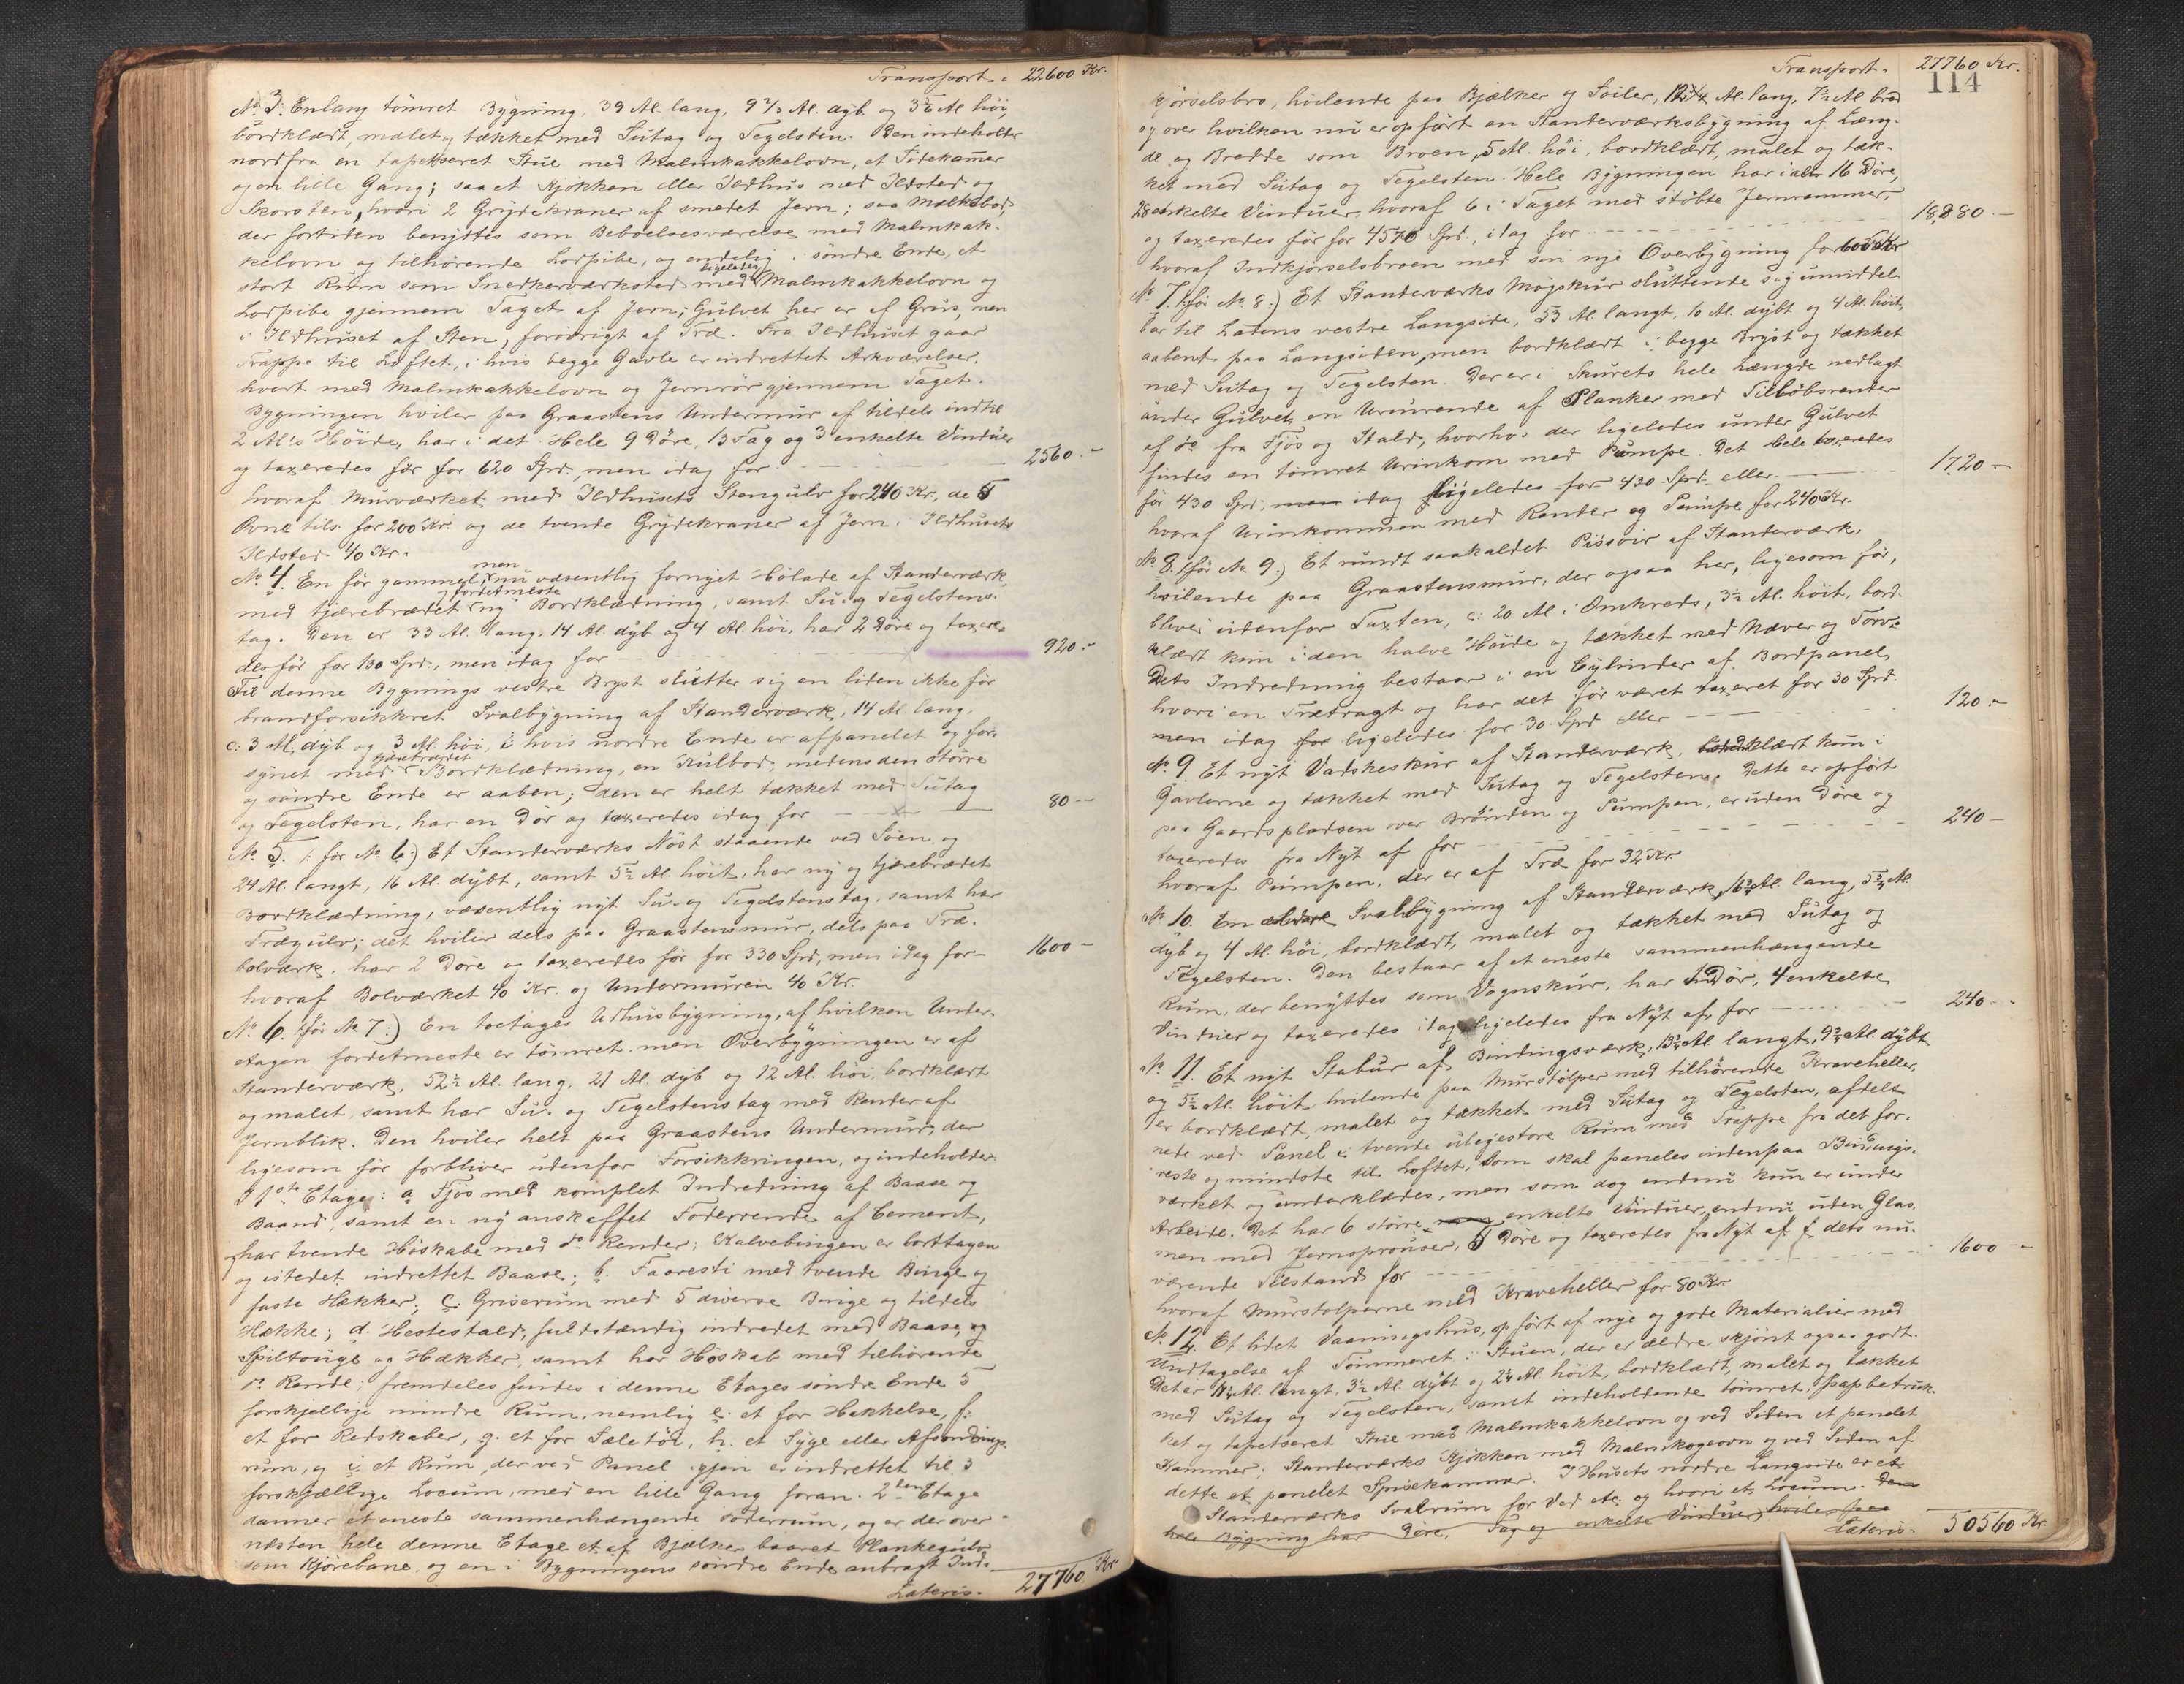 Transport. 22600 Kr.
No 3. Enlang tømret Bygning, 39 Al. lang, 9 2/3 Al. dyb og 3 1/2 Al høi,
bordklædt, malet og tækket med Sutag og Tegelsten. Den indeholder
nordfra en tapetseret Stue med Malmkakkelovn, et Sidekammer
og en lille Gang; saa et Kjøkken eller Ildhus med Ildsted og
Skorsten, hvori 2 Grydekraner af smedet Jern; saa Mælkebod,
der fortiden benyttes som Beboelsesværelse med Malmkak-
kelovn og tilhørende Lodpibe, og endelig i søndre Ende, et
stort Rum som Snedkerværksted med ligeledes Malmkakkelovn og
Lodpibe gjennem Taget af Jern; Gulvet her er af Grus, men
i Ildhuset af Sten, forøvrigt af Træ. Fra Ildhuset gaar
Trappe til Loftet, i hvis begge Gavle er indrettet Arkværelser,
hvert med Malmkakkelovn og Jernrør gjennem Taget.
Bygningen hviler paa Graastens Undermur af tildels indtil
2 Al's Høide, har i det Hele 9 Døre, 13 Fag og 3 enkelte Vinduer
og taxeredes før for 620 Spd., men idag for 2560.-
hvoraf Murværket med Ildhusets Stengulv for 240 Kr., de 5
Ovne tils. for 200 Kr og de tvende Grydekraner af Jern i Ildhusets
Ildsted 40 Kr.
No 4. En før gammel, men nu væsentlig fornyet Hølade af Standerværk,
med tjærebrædet og fordetmeste ny Bordklædning, samt Su- og Tegelstens-
tag. Den er 33 Al. lang, 14 Al. dyb og 4 Al. høi, har 2 Døre og taxere-
des før for 130 Spd., men idag for 920.-
Til denne Bygnings vestre Bryst slutter sig en liden ikke før
brandforsikkret Svalbygning af Standerværk, 14 Al. lang,
c: 3 Al. dyb og 3 Al. høi, i hvis nordre Ende er afpanelet og for-
synet med tjærebrædet Bordklædning, en Kulbod, medens den større
og søndre Ende er aaben; den er helt tækket med Sutag
og Tegelsten, har en Dør og taxeredes idag for 80 -
No 5. (: før No 6:) Et Standerværks Nøst staaende ved Søen og
24 Al. langt, 16 Al. dybt, samt 5 1/2 Al. høit, har ny og tjærebrædet
Bordklædning, væsentlig nyt Su- og Tegelstenstag, samt har
Trægulv; det hviler dels paa Graastensmur, dels paa Træ-
bolværk, har 2 Døre og taxeredes før for 330 Spd., men idag for 1600 -
hvoraf Bolværket 40 Kr. og Undermuren 40 Kr.
No 6. (før No 7:) En toetages Udhusbygning, af hvilken Under-
etagen fordetmeste er tømret, men Overbygningen er af
Standerværk, 52 1/2 Al. lang, 21 Al. dyb og 12 Al. høi, bordklædt
og malet, samt har Su- og Tegelstenstag med Render af
Jernblik. Den hviler helt paa Graastens Undermur, der
ligesom før forbliver udenfor Forsikkringen, og indeholder
I 1ste Etage: a Fjøs med komplet Indredning af Baase og
Baand, samt en ny anskaffet Foderrende af Cement,
har tvende Høskabe med do Render; Kalvebingen er borttagen
og istedet indrettet Baase; b. Faaresti med tvende Binge og
faste Hækker; c. Griserum med 5 diverse Binge og tildels
Hække; d. Hestestald, fuldstændig indredet med Baase, og
Spiltouge og Hækker, samt har Høskab med tilhørende
do Rende; fremdeles findes i denne Etages søndre Ende 5
forskjellige mindre Rum, nemlig e. et for Hakkelse, f.
et for Redskaber, g. et for Sæletøi, h. et Syge eller Afsondrings-
rum, og i. et Rum, der ved Panel igjen er indrettet til 3
forskjællige Locum, med en lille Gang foran. 2den Etage
danner et eneste sammenhængende Foderrum, og er der over
næsten hele denne Etage et af Bjælker baaret Plankegulv
som Kjørebane, og en i Bygningens søndre Ende anbragt Ind-
Lateris. 27760 Kr
Transport. 27760 Kr.
114
kjørselsbro, hvilende paa Bjælker og Søiler, 12 3/4 Al. lang, 7 1/2 Al bred
og over hvilken nu er opført en Standerværksbygning af Læng-
de og Bredde som Broen, 5 Al. høi, bordklædt, malet og tæk-
ket med Sutag og Tegelsten. Hele Bygningen har ialt 16 Døre,
28 enkelte Vinduer, hvoraf 6 i Taget med støbte Jernrammer,
og taxeredes før for 4570 Spd., idag for 18,880.-
hvoraf Indkjørselsbroen med sin nye Overbygning for 600 Kr
No 7. (før No 8:) Et Standerværks Møgskur sluttende sig umiddel-
bar til Ladens vestre Langside, 53 Al. langt, 10 Al. dybt og 4 Al. høit,
aabent paa Langsiden, men bordklædt i begge Bryst og tækket
med Sutag og Tegelsten. Der er i Skurets hele Længde nedlagt
under Gulvet en Urinrende af Planker med Tilløbsrender
af do fra Fjøs og Stald, hvorhos der ligeledes under Gulvet
findes en tømret Urinkom med Pumpe. Det hele taxeredes
før 430 Spd., men idag ligeledes for 430 Spd. eller 1720 -
hvoraf Urinkommen med Render og Pumpe for 240 Kr.
No 8. (før No 9.) Et rundt saakaldet Pissoir af Standerværk,
hvilende paa Graastensmur, der ogsaa her, ligesom før,
bliver udenfor Taxten, c: 20 Al i Omkreds, 3 1/2 Al. høit, bord-
klædt kun i den halve Høide og tækket med Næver og Torv.
Dets Indredning bestaar i en Cylinder af Bordpanel,
hvori en Trætragt og har det før været taxeret for 30 Spd.
men idag for ligeledes for 30 Spd eller 120 -
No 9. Et nyt Vadskeskur af Standerværk, bordklædt kun i
Gavlerne og tækket med Sutag og Tegelsten. Dette er opført
paa Gaardspladsen over Brønden og Pumpen, er uden Døre og
taxeredes fra Nyt af for 240 -
hvoraf Pumpen, der er af Træ for 32 Kr
No 10. En Svalbygning af Standerværk, 16 3/4 Al. lang, 5 3/4 Al.
dyb og 4 Al. høi, bordklædt, malet og tækket med Sutag og
Tegelsten. Den bestaar af et eneste sammenhængende
Rum, der benyttes som Vognskur, har 1 Dør, 4 enkelte
Vinduer og taxeredes idag ligeledes fra Nyt af, for 240 -
No 11. Et nyt Stabur af Bindingsværk, 13 3/4 Al. langt, 9 3/4 Al. dybt
og 5 1/2 Al. høit hvilende paa Murstolper med tilhørende Kraveheller,
er bordklædt, malet og tækket med Sutag og Tegelsten, afdelt
nede ved Panel i tvende uligestore Rum med Trappe fra det for-
reste og mindste til Loftet, som skal paneles indenpaa Bindings-
værket og underklædes, men som dog endnu kun er under
Arbeide. Det har 6 større enkelte Vinduer, endnu uden Glas,
men med Jernsprouser, 5 Døre og taxeredes fra Nyt af i dets nu-
værende Tilstand for 1600 -
hvoraf Murstolperne med Kraveheller for 80 Kr
No 12. Et lidet Vaaningshus, opført af nye og gode Materialier med
Undtagelse af Tømmeret i Stuen, der er ældre, skjønt ogsaa godt.
Det er Al. langt, 3 1/2 Al. dybt og 2 1/4 Al. høit, bordklædt, malet og tækket
med Sutag og Tegelsten, samt indeholdende tømret, papbetruk-
ket og tapetseret Stue med Malmkakkelovn og ved Siden et panelet
Kammer; Standerværks Kjøkken med Malmkogeovn og ved Siden af
dette et panelet Spisekammer. I Husets nordre Langside er et
Standerværks Svalrum for Ved etc. og hvori et Locum. Den
hele Bygning har Døre, Fag og enkelte Vinduer, hviler paa
Lateris. 50560 Kr.